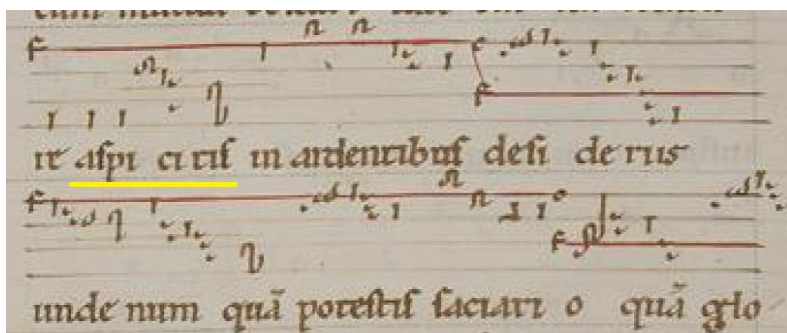 re aspi ci tis in ardentibus desi de riis
unde num quā potestis saciari o quā glo